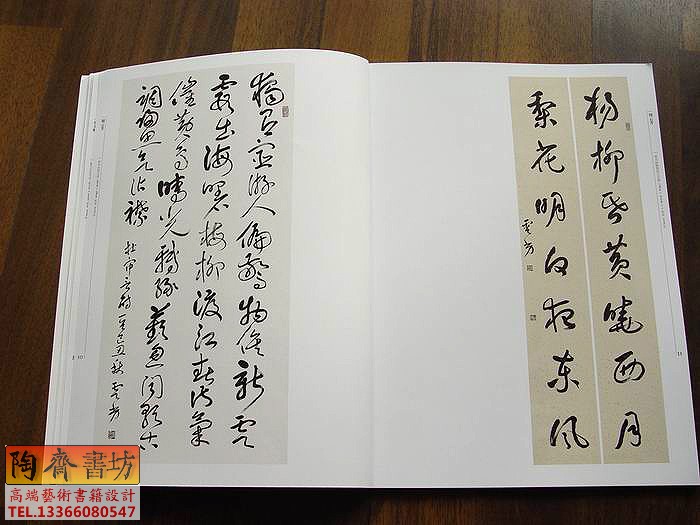 獨有宦游人偏驚物候新雲
霞出海曙梅柳渡江春淑氣
催黃鳥晴光轉綠蘋忽聞歌古
調歸思欲沾襟 杜審言詩一首己丑秋
10
楊柳昏黃曉西月
梨花明白夜東風
11
陶齋書坊
高端藝術書籍設計
TEL.13366080547